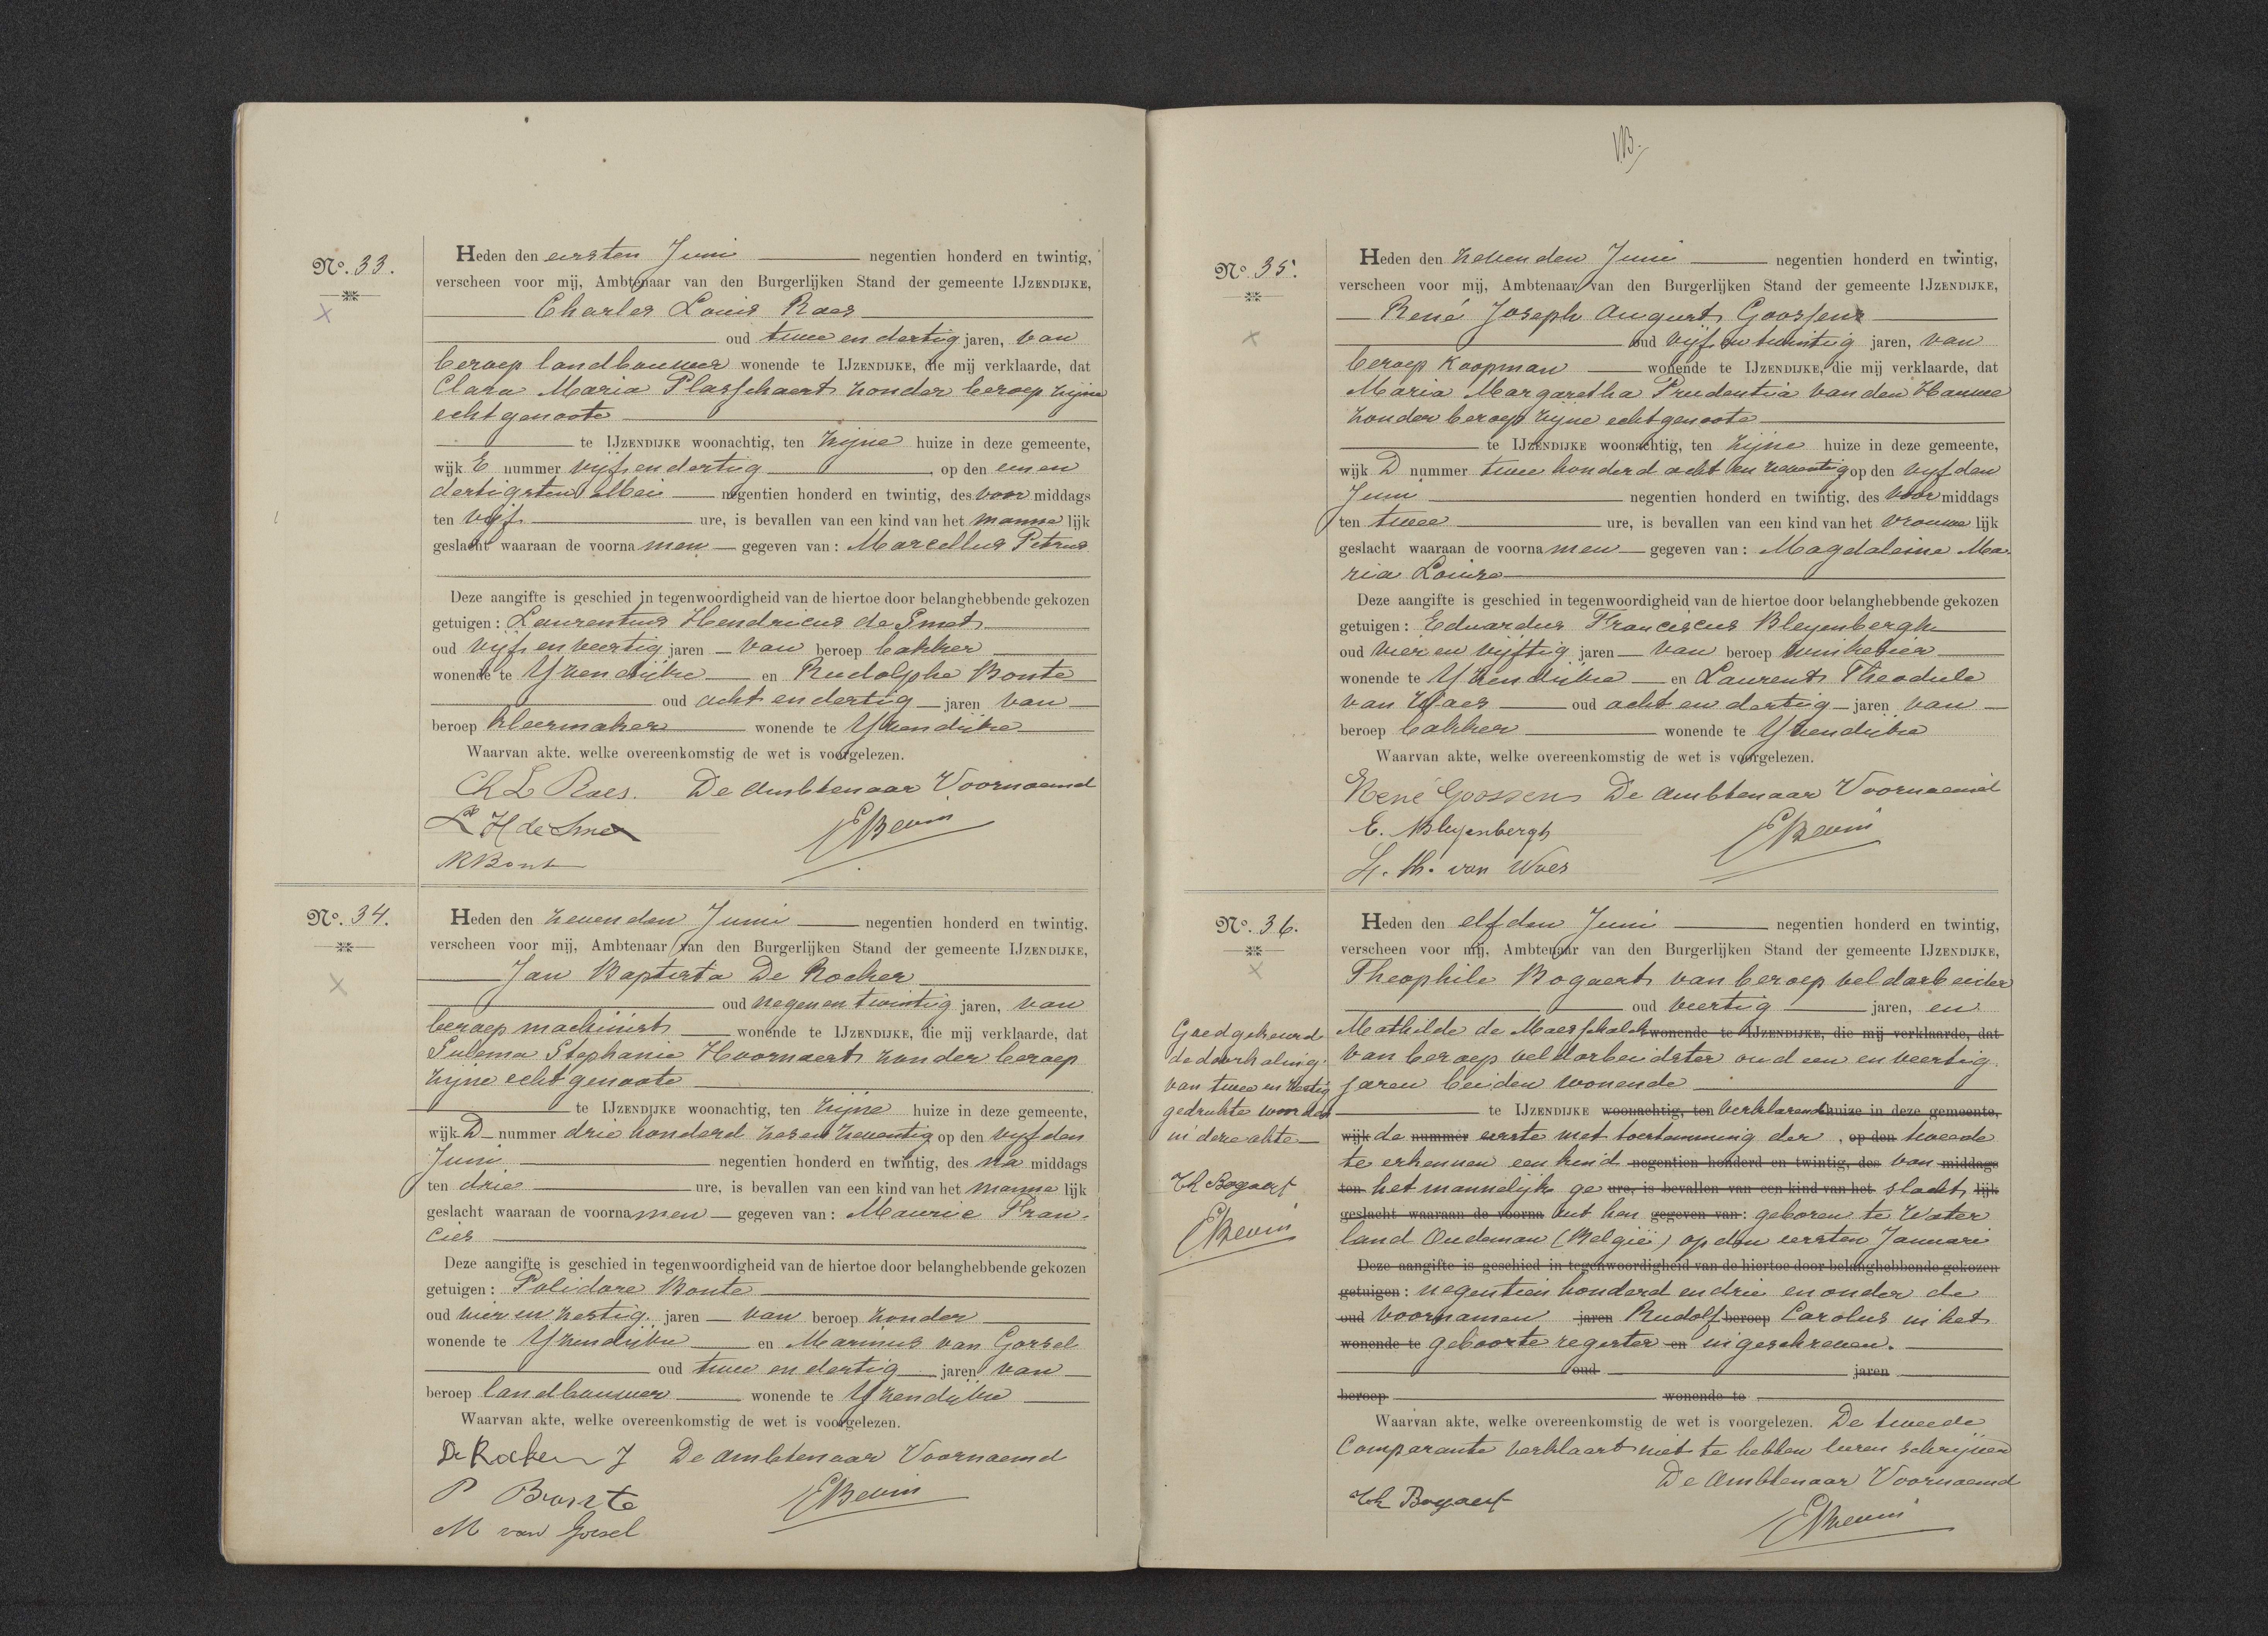 No. 33.
Heden den eersten Juni negentien honderd en twintig,
verscheen voor mij, Ambtenaar van den Burgerlijken Stand der gemeente IJZENDIJKE,
Charles Louis Raes
oud twee en dertig jaren, van
beroep landbouwer wonende te IJZENDIJKE, die mij verklaarde, dat
Clara Maria Plasschaert zonder beroep zijne
echtgenoote
te IJZENDIJKE woonachtig, ten zijne huize in deze gemeente,
wijk E nummer vijf en dertig op den een en
dertigsten Mei negentien honderd en twintig, des voor middags
ten vijf ure, is bevallen van een kind van het manne lijk
geslacht waaraan de voorna men gegeven van: Marcellus Petrus
Deze aangifte is geschied in tegenwoordigheid van de hiertoe door belanghebbende gekozen
getuigen: Laurentius Hendricus de Smet
oud vijf en veertig jaren van beroep bakker
wonende te Yzendijke en Rudolphe Bonte
oud acht en dertig jaren van
beroep kleermaker wonende te Yzendijke
Waarvan akte. welke overeenkomstig de wet is voorgelezen.
Ch L Raes. De Ambtenaar Voornoemd
L H de Smet
R Bont
No. 34.
Heden den zevenden Juni negentien honderd en twintig.
verscheen voor mij, Ambtenaar van den Burgerlijken Stand der gemeente IJZENDIJKE,
Jan Baptista De Rocker
oud negen en twintig jaren, van
beroep machinist wonende te IJZENDIJKE, die mij verklaarde, dat
Sulema Stephanie Hoornaert zonder beroep
zijne echtgenoote
te IJZENDIJKE woonachtig, ten zijne huize in deze gemeente,
wijk D nummer drie honderd zes en zeventig op den vijfden
Juni negentien honderd en twintig, des na middags
ten drie ure, is bevallen van een kind van het manne lijk
geslacht waaraan de voorna men gegeven van: Maurice Fran-
cies
Deze aangifte is geschied in tegenwoordigheid van de hiertoe door belanghebbende gekozen
getuigen: Polidore Bonte
oud vier en zestig jaren van beroep zonder
wonende te Yzendijke en Marinus van Gorsel
oud twee en dertig jaren van
beroep landbouwer wonende te Yzendijke
Waarvan akte, welke overeenkomstig de wet is voorgelezen.
De Rocker J De Ambtenaar Voornoemd
P Bonte
M van Gorsel
No. 35.
Heden den zevenden Juni negentien honderd en twintig,
verscheen voor mij, Ambtenaar van den Burgerlijken Stand der gemeente IJZENDIJKE,
René Joseph August Goossens
oud vijf en twintig jaren, van
beroep koopman wonende te IJZENDIJKE, die mij verklaarde, dat
Maria Margaretha Prudentia van den Hauwe
zonder beroep zijne echtgenoote
te IJZENDIJKE woonachtig, ten zijne huize in deze gemeente,
wijk D nummer twee honderd acht en zeventig op den vijfden
Juni negentien honderd en twintig, des voor middags
ten twee ure, is bevallen van een kind van het vrouwe lijk
geslacht waaraan de voorna men gegeven van: Magdaleine Ma-
ria Louise
Deze aangifte is geschied in tegenwoordigheid van de hiertoe door belanghebbende gekozen
getuigen: Eduardus Franciscus Bleyenbergh
oud vier en vijftig jaren van beroep winkelier
wonende te Yzendijke en Laurent Theodule
van Waes oud acht en dertig jaren van
beroep bakker wonende te Yzendijke
Waarvan akte, welke overeenkomstig de wet is voorgelezen.
René Goossens De Ambtenaar Voornoemd
E. Bleyenbergh
L. Th. van Waes
No. 36.
Heden den elfden Juni negentien honderd en twintig,
verscheen voor mij, Ambtenaar van den Burgerlijken Stand der gemeente IJZENDIJKE,
Theophile Bogaert van beroep veldarbeider
oud veertig jaren, en
Mathilde de Maesschalck wonende te IJZENDIJKE, die mij verklaarde, dat
van beroep veldarbeidster oud een en veertig
jaren beiden wonende
te IJZENDIJKE woonachtig, ten verklarende huize in deze gemeente,
wijk de nummer eerste met toestemming der, op den tweede
te erkennen een kind negentien honderd en twintig, des van middags
ten het mannelijk ge ure, is bevallen van een kind van het slacht lijk
geslacht waaraan de voorna uit hen gegeven van: geboren te Water
land Oudeman (België) op den eersten Januari
Deze aangifte is geschied in tegenwoordigheid van de hiertoe door belanghebbende gekozen
getuigen: negentien honderd en drie en onder de
oud voornamen jaren Rudolf beroep Carolus in het
wonende te geboorte register en ingeschreven.
oud jaren
beroep wonende te
Waarvan akte, welke overeenkomstig de wet is voorgelezen. De tweede
Comparante verklaart niet te hebben leeren schrijven
De Ambtenaar Voornoemd
Th Bogaert
Goedgekeurd
de doorhaling
van twee en zestig
gedrukte woorden
in deze akte
Th Bogaert